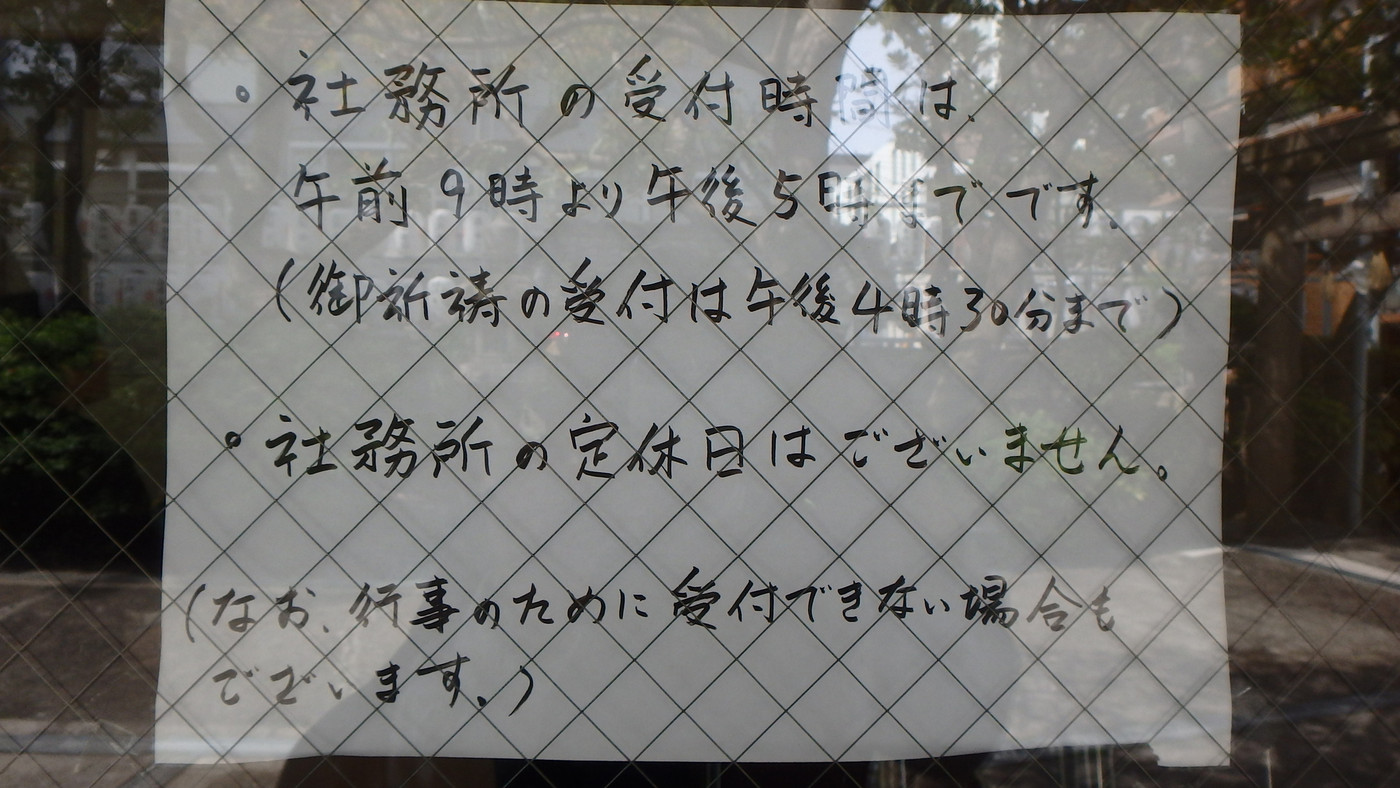 。社務所の受付時間は、
午前9時より午後5時までです。
(御祈祷の受付は午後4時30分まで)
。社務所の定休日はございません。
(なお、行事のために受付できない場合も
ございます。)